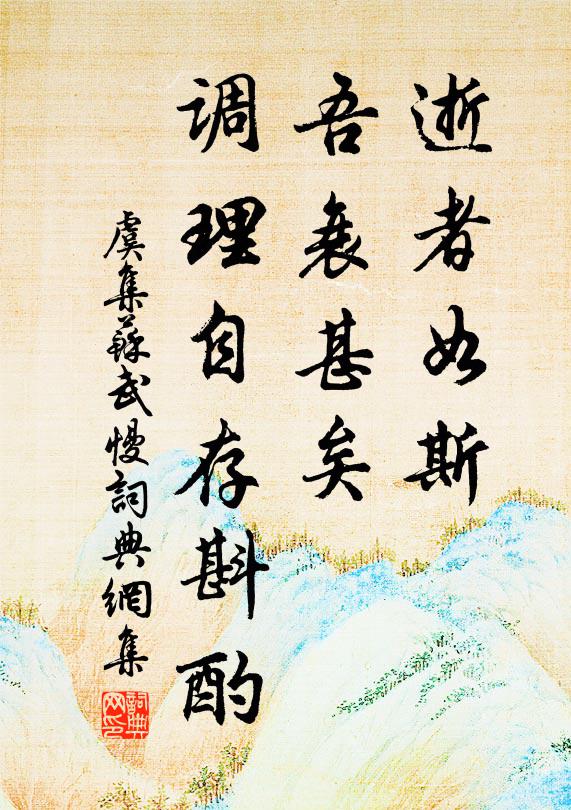 逝者如斯
吾衰甚矣
调理自存斟酌
虞集蘇武慢詞典網集
詞典网印